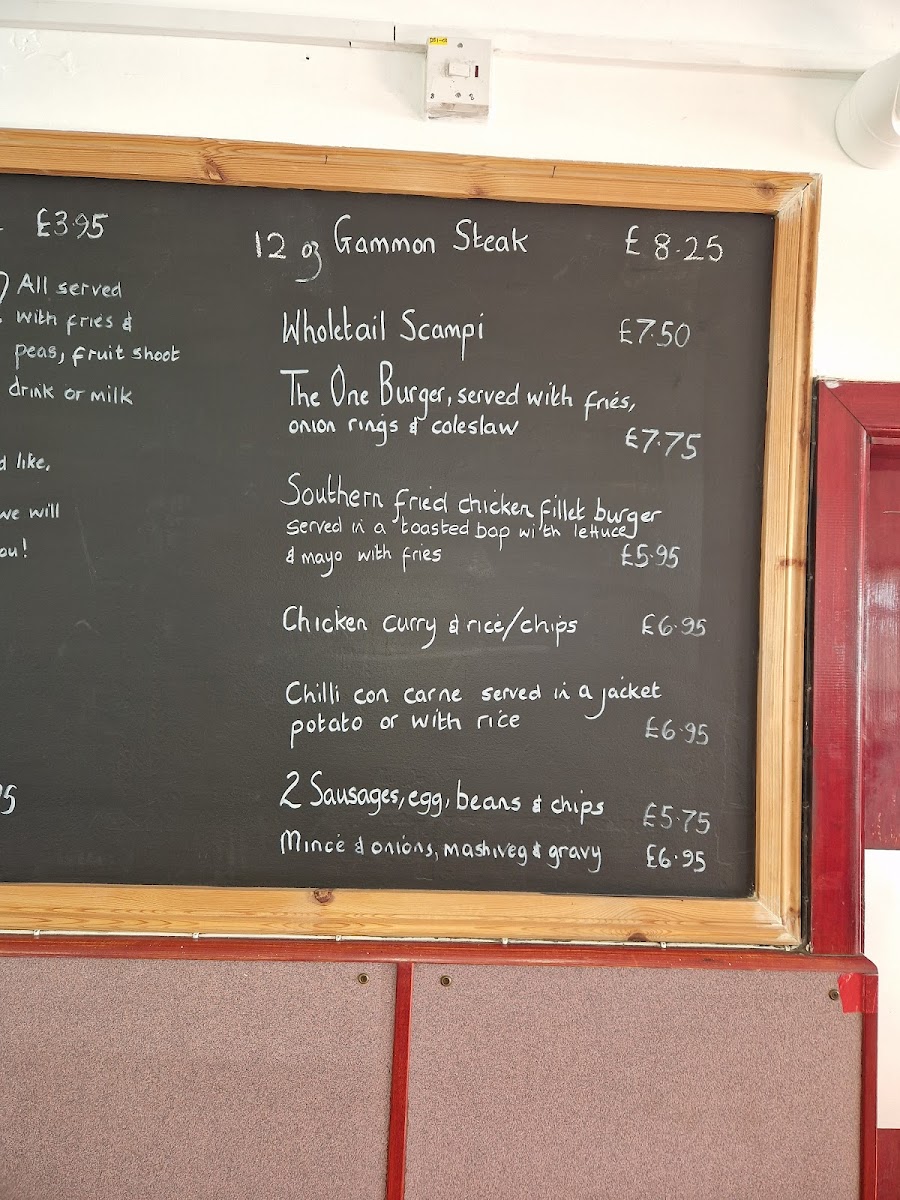 £3.95
All served
with fries &
peas, fruit shoot
drink or milk
like,
we will
ou!
5
12 oz Gammon Steak £8.25
Wholetail Scampi £7.50
The One Burger, served with fries,
onion rings & coleslaw
£7.75
Southern fried chicken fillet burger
served in a toasted bap with lettuce
& mayo with fries £5.95
Chicken curry & rice/chips £6.95
Chilli con carne served in a jacket
potato or with rice £6.95
2 Sausages, egg, beans & chips £5.75
Mince & onions, mash, veg & gravy £6.95